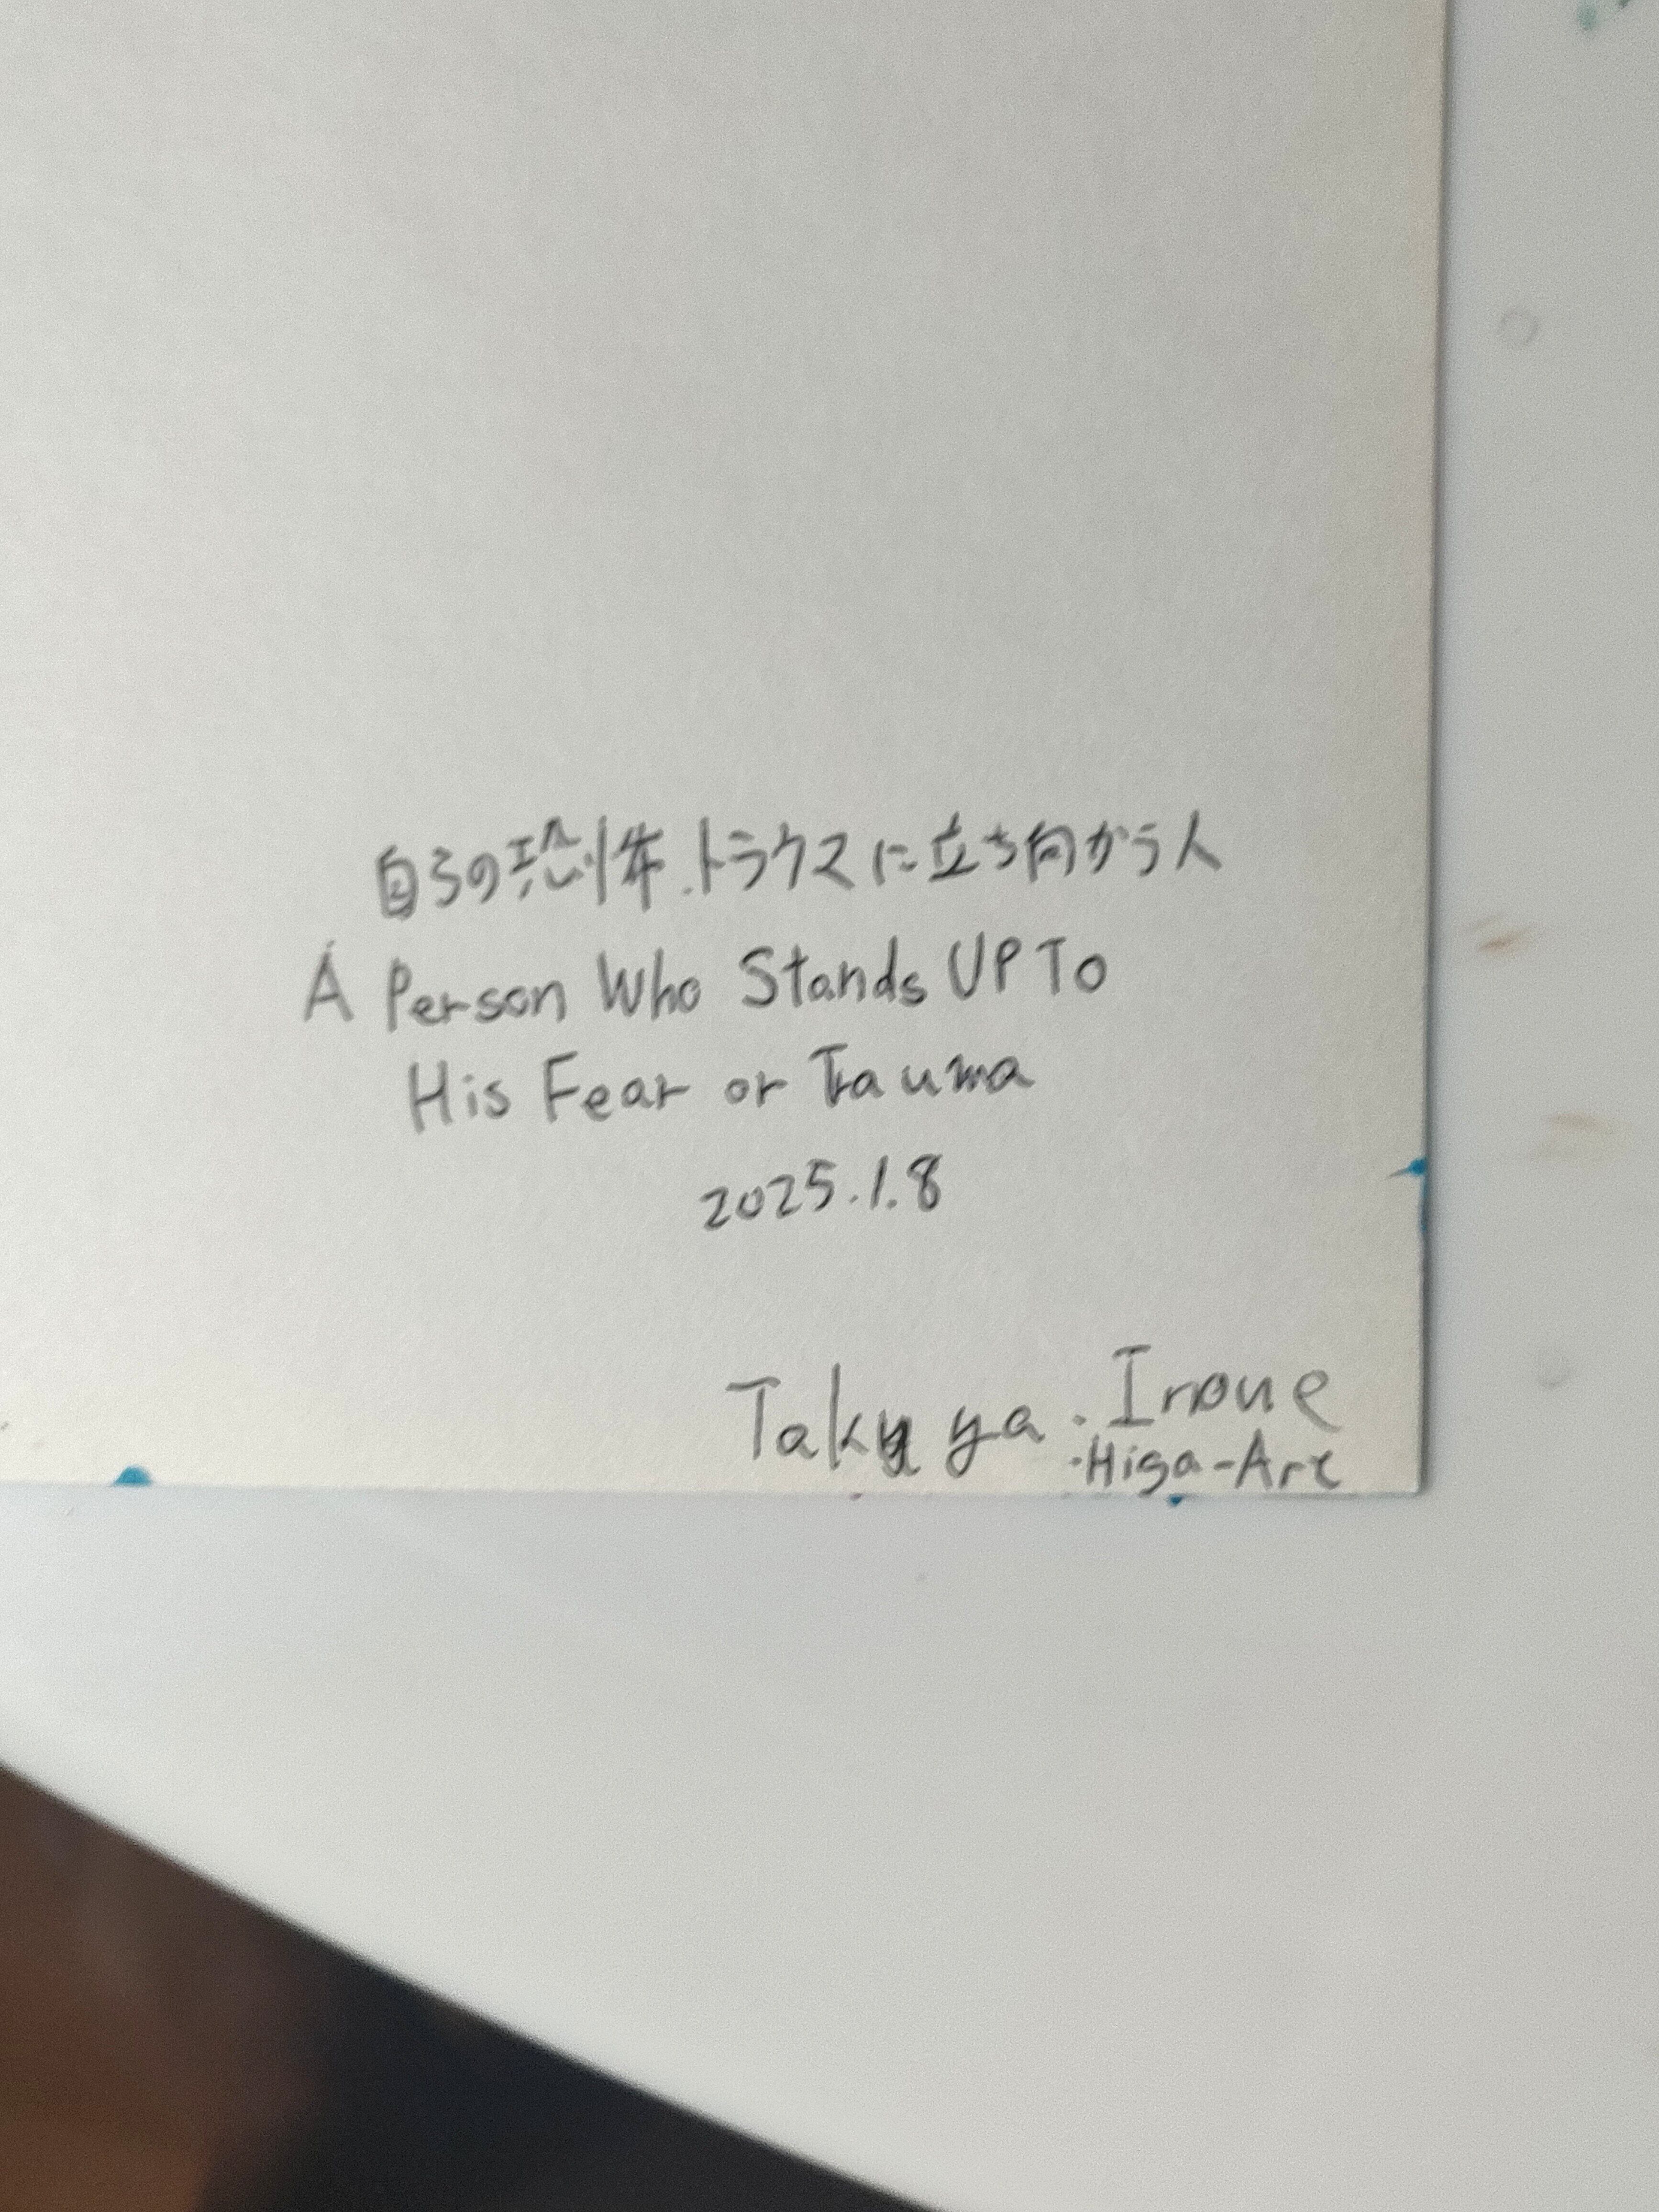 自らの恐怖.トラウマに立ち向かう人
A Person Who Stands UP To
His Fear or Trauma
2025.1.8
Takuya.Inoue
·Higa-Art